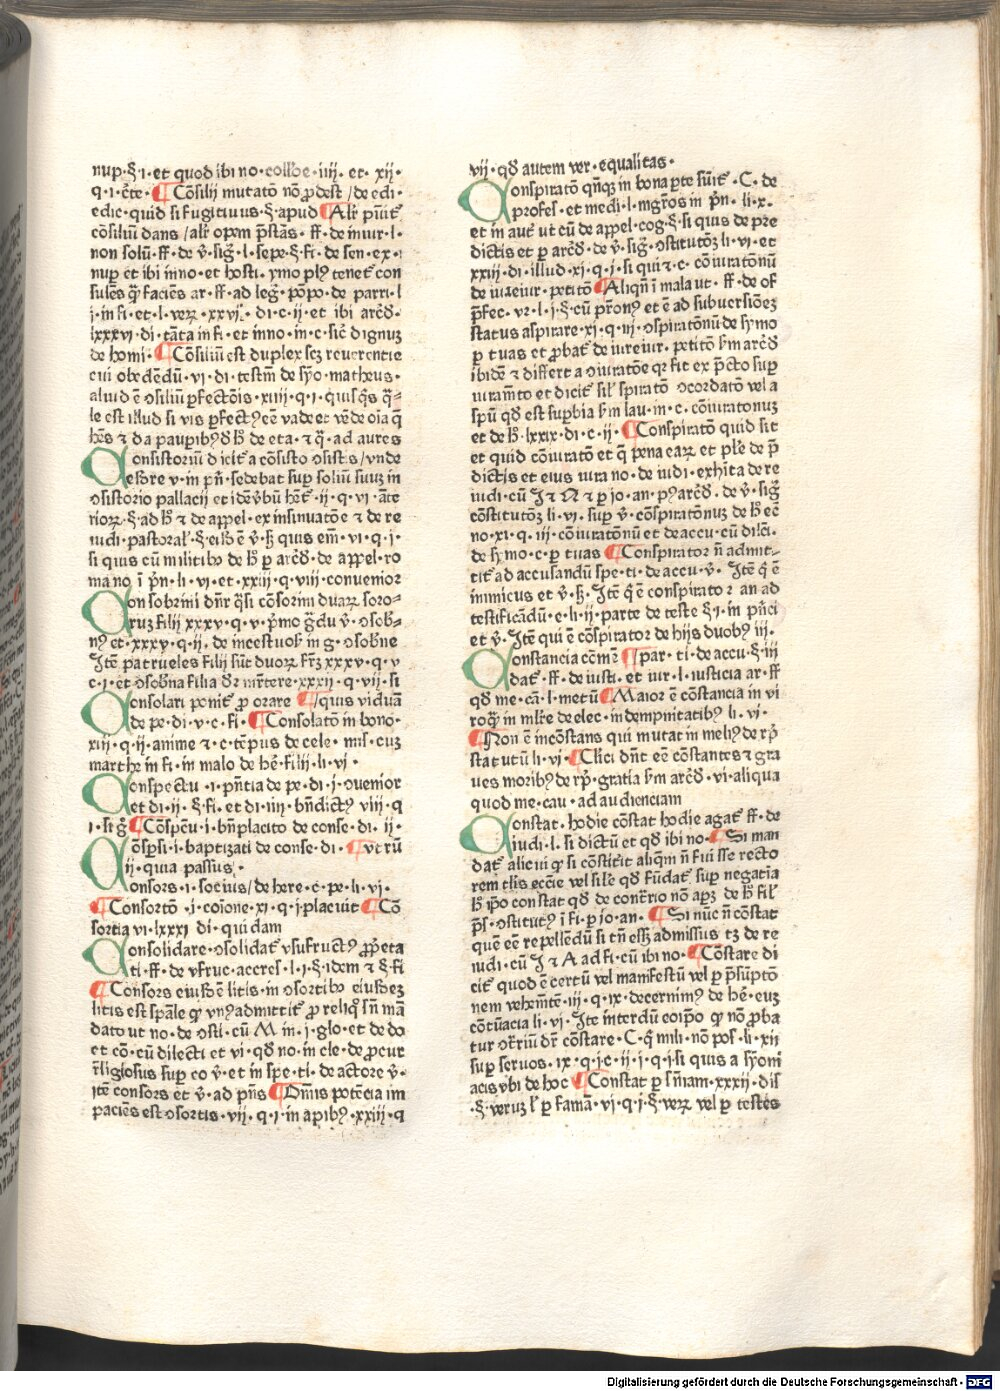 nup·§·i·et quod ibi no·collōe·iiij·et·xij·
q·i·c̄te·¶Cōsilij mutatō nō ꝓdest/de edi·
edic·quid si fugitiuus·§·apud ¶Alr̄ piūt̄
cōsiliū dans/alr̄ opem p̄stās·ff·de iniur·l·
non solū·ff·de v̄·siḡ·l·sepe·§·fi·de sen·ex·
nup̄ et ibi inno·et hosti·ymo plꝰ tenet̄ con
sulēs q̄ faciēs ar·ff·ad leḡ·pōpo·de parri·l
j·in fi·et·l·veꝝ·xxvj·di·c·ij·et ibi arch̄·
lxxxvi·di·tāta in fi·et inno·in·c·sic̄ dignuꝫ
de homi·¶Cōsiliū est duplex scꝫ reuerentie
cui obedēdū·vi·di·testm̄ de sȳo·matheus·
aliud ē ↄsiliū ꝑfectōis·xiiij·q·i·quisq̄s q̄=
le est illud si vis ꝑfectꝰ eē vade et vēde oīa q̄
hēs ⁊ da pauꝑibꝰ de hͦ de eta·⁊ q̄·ad aures
Consistoriū dicit̄ a cōsisto ↄsistis/vnde
esdre v·in pn̄·sedebat suꝑ soliū suuꝫ in
ↄsistorio pallacij et idē v̄bū hēt̄·ij·q·vi·āte
rioꝝ·§·ad hͦ ⁊ de appel·ex insinuatōe ⁊ de re
iudi·pastoral̄·§·eisdē v̄·ꝗ quis em̄·vi·q·j·
si quis cū militibꝰ de hͦ ꝑ arch̄·de appel·ro
mano ī pn̄·li·vj·et·xxiij·q·viij·conuenior
Consobrini dn̄r q̄si cōsorini duaꝝ soro=
ruꝫ filij xxxv·q·v·pͥmo ḡdu v̄·ↄsob=
nꝰ et·xxxv·q·ij·de incestuoß in g·ↄsobͥne
Itē patrueles filij sūt duoꝝ frm̄ xxxv·q·v
c·i·et ↄsobͥna filia d̄r mr̄tere·xxxij·q·vij·si
Consolari ponit̄ ꝓ orare ¶/quis viduā
de pe·di·v·c·fi·¶Consolatō in bono·
xiij·q·ij·anime ⁊·c·tēpus de cele·mis̄·cuꝫ
marthe in fi·in malo de hē·filij·li·vj·
Conspectu·i·pn̄tia de pe·di·j·ↄuenior
et di·ij·§·fi·et di·iiij·bn̄dictꝰ viij·q
i·si g̊ ¶Cōsp̄cū·i·bn̄placito de conse·di·ij·
Cōsp̄si·i·baptizati de conse·di·¶vtrū
ij·quia passus·
Consors·i·socius/de here·c·pe·li·vi·
¶Consortō·j·coīone·xi·q·j·placuit ¶Cō
sortia vi·lxxxi di·qui dam
Consolidare·ↄsolidat̄ vsufructꝰ ꝓp̄eta
ti·ff·de vfruc·accres̄·l·i·§·idem ⁊ §·fi
¶Consors eiusdē litis·in ↄsortibꝰ eiusdeꝫ
litis est sp̄ale qͥ vnꝰ admittit̄ ꝓ reliqͦ sn̄ mā
dato ut no·de ↄsti·cū M in·j·glo·et de do
et cō·cū dilecti et vi·qd̄ no·in cle·de ꝓcur
r̄ligiosus suꝑ eo v̄·et in spe·ti·de actore v̄·
itē consors et v̄·ad pn̄s ¶Dīnis potēcia im
paciēs est ↄsortis·vij·q·i·in apibꝰ·xxiij·q
vij·qd̄ autem ver·equalitas·
Conspiratō qn̄qꝫ in bona ꝑte sūit̄·C·de
profes̄·et medi·l·mgr̄os in pn̄·li·x·
et in aut̄ ut cū de appel·cog·§·si quis de pre
dictis et ꝑ arch̄·de v̄·siḡ·ↄstitutōꝫ li·vi·et
xxiij·di·illud·xj·q·j·si qui ⁊·c·cōiuratōnū
de iureiur·petitō ¶Aliqn̄ ī mala ut·ff·de of
p̄fec·vr·l·j·§·cū pr̄onꝰ et ē ad subuersiōeꝫ
status aspirare·xj·q·iij·ↄspiratōnū de symo
ꝑ tuas et ꝓbat̄ de iureiur·petitō ẜm arch̄
ibidē ⁊ differt a ↄiuratōe qr fit ex p̄cto suꝑ
iuram̄to et dicit̄ sil̄ spiratō ↄcordatō vel a
spū qd̄ est suꝑbia ẜm lau·in·c·cōiuratonuꝫ
et de hͦ·lxxix·di·c·ij·¶Conspiratō quid sit
et quid cōiuratō et q̄ pena eaꝝ et pl̄e de p̄
dictis et eius iura no·de iudi·exhita de re
iudi·cū I ⁊ A ⁊ ꝑ jo·an·pꝰ arch̄·de v̄·siḡ
cōstitutōꝫ li·vi·suꝑ v̄·cōspiratōnuꝫ de hͦ eē
no·xi·q·iij·cōiuratōnū et de accu·cū dilci·
de symo·c·ꝑ tuas ¶Conspirator n̄ admit=
tit̄ ad accusandū spe·ti·de accu·v̄·Itē q̄ ē
inimicus et v̄·ẜ·Itē q̄ ē conspirator an ad
testificādū·e·li·ij·parte de teste §·i·in pn̄ci
et v̄·Itē qui ē cōspirator de hijs duobꝰ iij·
Constancia cēmr̄ ¶/par·ti·de accu·§·iij
dat̄·ff·de iusti·et iur·l·iusticia ar·ff
qd̄ me·cā·l·metū ¶Maior ē cōstancia in vi
roqͣ in mlr̄e de elec·indempnitatibꝰ li·vi·
¶Non ē incōstans qui mutat in melꝰ de rp̄
stat utū li·vi·¶Clici dn̄t eē cōstantes ⁊ gra
ues moribꝰ de rp̄·gratia ẜm arch̄·vi·aliqua
quod me·cau·ad audienciam
Constat·hodie cōstat hodie agat̄ ff·de
iudi·l·si dictū et qd̄ ibi no·¶Si man
dat̄ alicui qͥ si cōstit̄it aliqm̄ n̄ fuisse recto
rem tl̄is ecc̄ie vel sil̄e qd̄ fūdat̄ suꝑ negatīa
hͦ ip̄o constat qd̄ de cont̄rio nō apꝫ de hͦ fil̄
pͥs·ↄstitutꝰ ī fi·ꝑ jo·an·¶Si nūc n̄ cōstat
quē eē repellēdū si tn̄ esꝫ admissus tꝫ de re
iudi·cū I ⁊ A ad fi·cū ibi no·¶Cōstare di
cit̄ quod ē certū vel manifestū vel ꝑ p̄suptō
nem vehemt̄e·iij·q·ix·decernimꝰ de hē·cuꝫ
cōtuacia li·vi·Ite interdū eoip̄o qͥ nō ꝓba
tur ↄt̄riū dr̄ cōstare·C·q̄ mili·nō pos̄·li·xij
suꝑ seruos·ix·q·j·c·ij·j·q·j·si quis a syōni
acis vbi de hoc ¶Constat ꝑ sn̄iam·xxxij·dis̄
·§·veruꝫ l̄ ꝑ famā·vj·q·j·§·veꝝ vel ꝑ testes
Digitalisierung gefördert durch die Deutsche Forschungsgemeinschaft - DFG